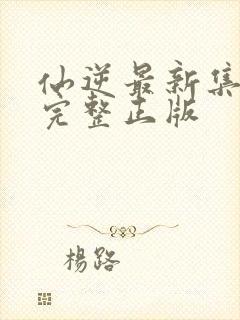 仙逆最新集
完整正版
楊路